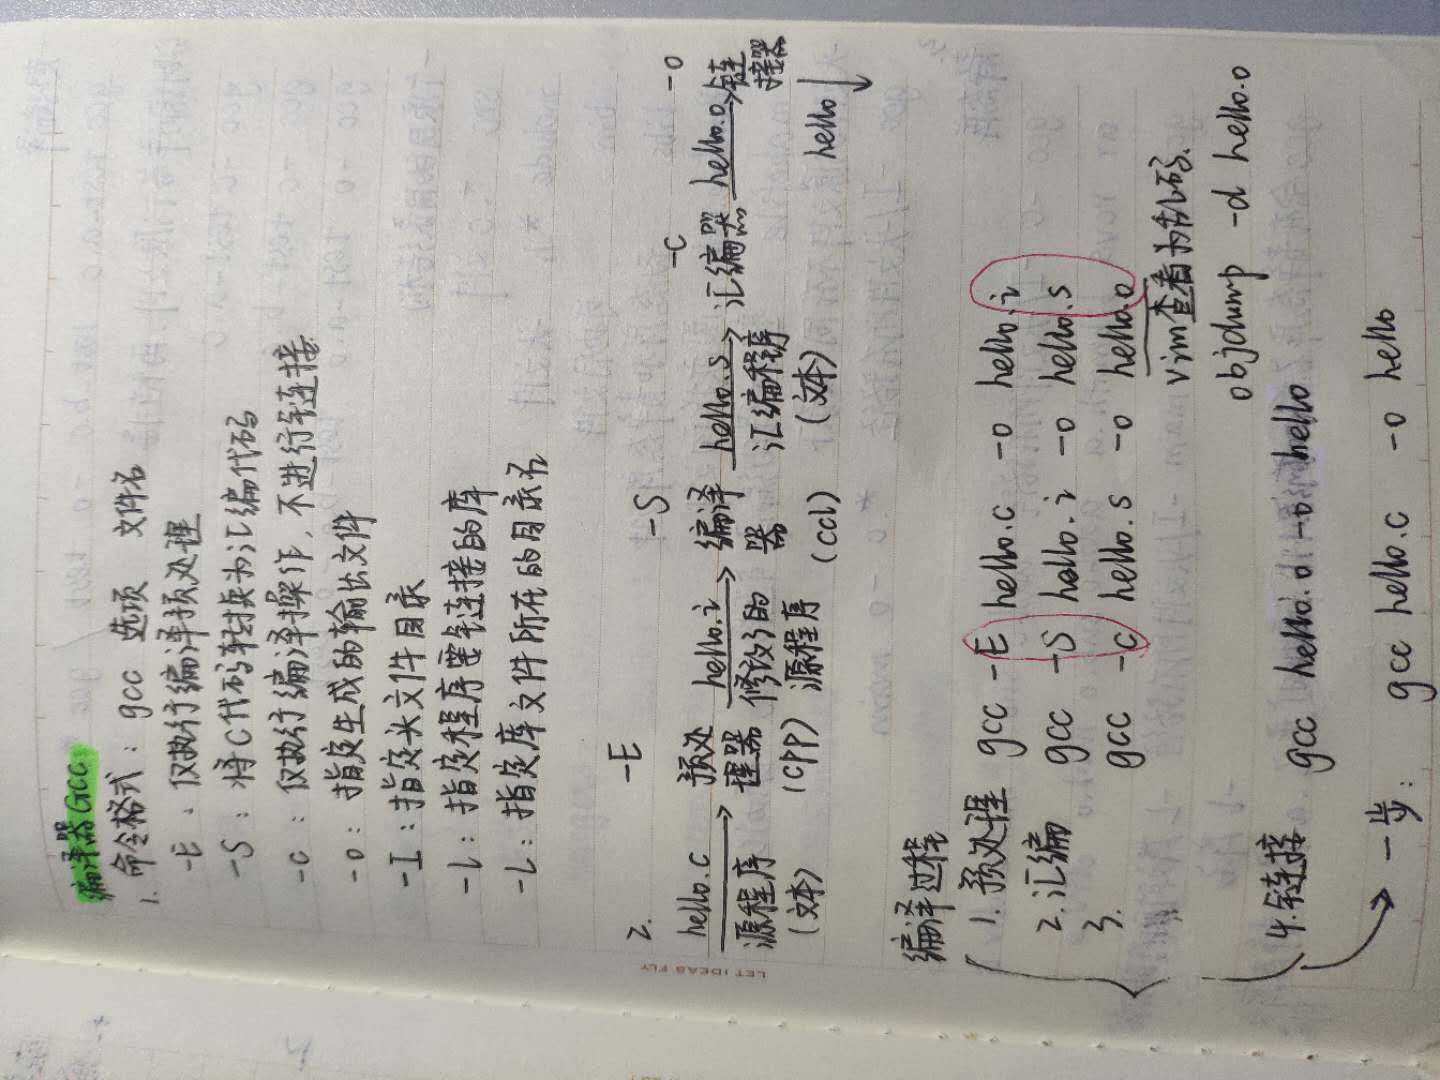 编译器GCC
1. 命令格式：gcc 选项 文件名
-E：仅执行编译预处理
-S：将C代码转换为汇编代码
-c：仅执行编译操作，不进行链接
-o：指定生成的输出文件
-I：指定头文件目录
-l：指定程序要链接的库
-L：指定库文件所在的目录名
2.
-E -S -C -o
hello.c 预处理器 hello.i 编译器 hello.s 汇编器 hello.o 链接器
源程序（文本） (cpp) 修改了的源程序 (ccl) 汇编程序（文本） hello
编译过程
1. 预处理 gcc -E hello.c -o hello.i
2. 汇编 gcc -S hello.i -o hello.s
3. gcc -c hello.s -o hello.o
vim查看为乱码.
objdump -d hello.o
4. 链接 gcc hello.o -o hello
一步： gcc hello.c -o hello
LET IDEAS FLY